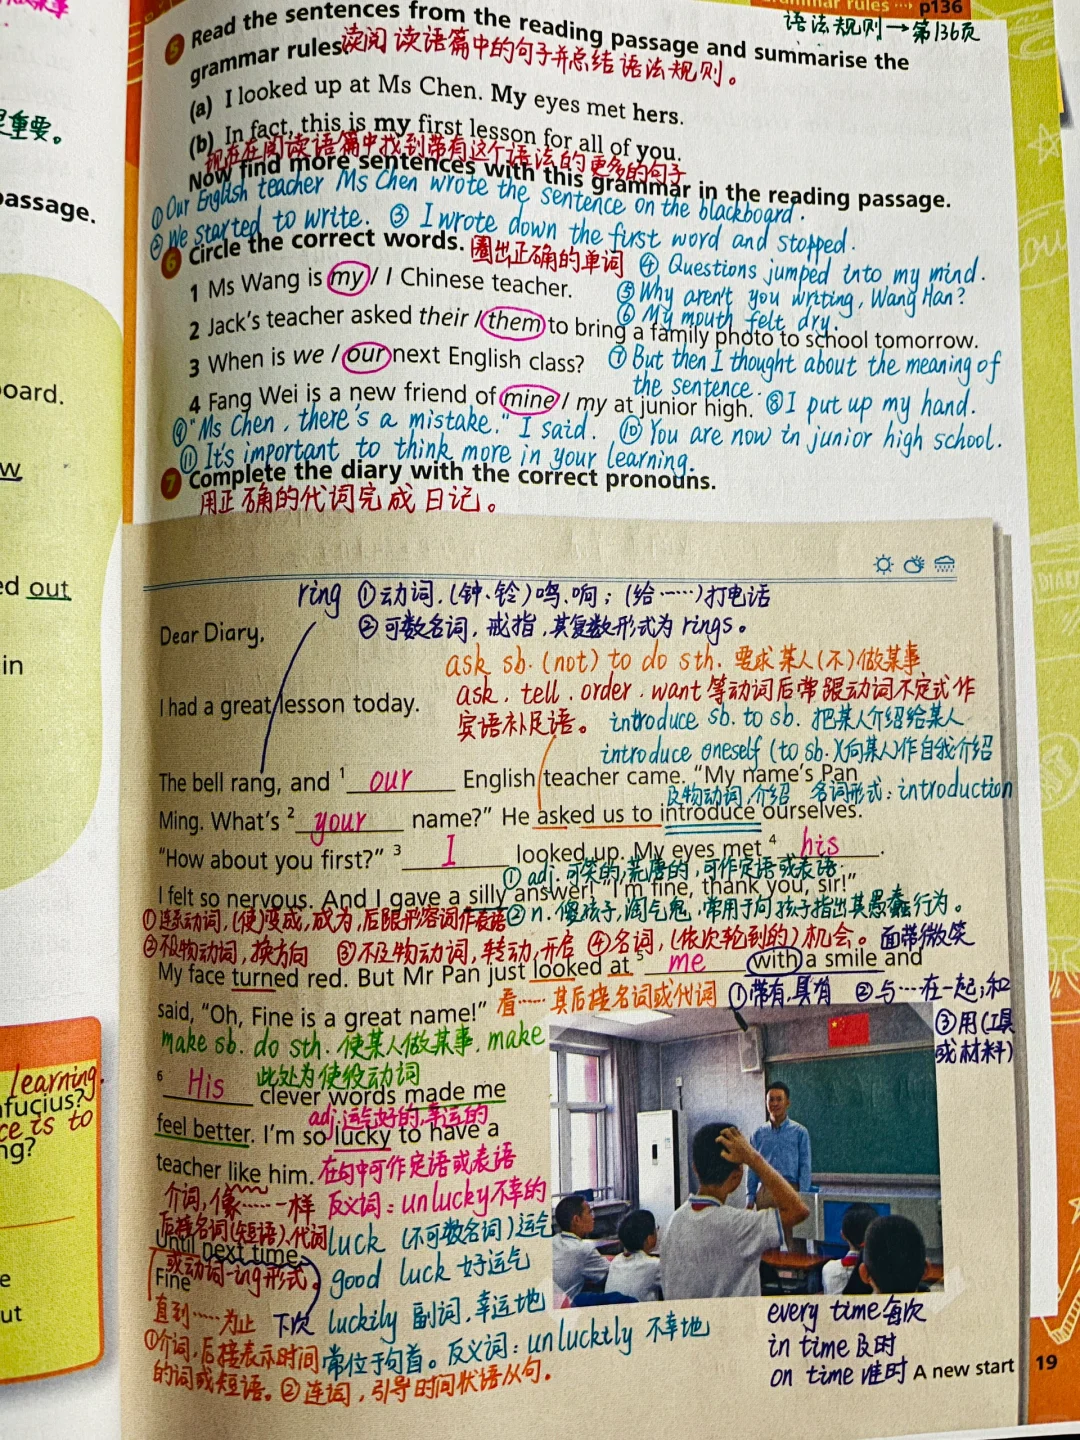 rammar rules ··· p136
语法规则→第136页
5 Read the sentences from the reading passage and summarise the
grammar rules. 读阅读语篇中的句子并总结语法规则。
(a) I looked up at Ms Chen. My eyes met hers.
(b) In fact, this is my first lesson for all of you.
现在在阅读语篇中找到带有这个语法的更多的句子
Now find more sentences with this grammar in the reading passage.
①Our English teacher Ms Chen wrote the sentence on the blackboard.
②We started to write. ③ I wrote down the first word and stopped.
6 Circle the correct words. 圈出正确的单词
④ Questions jumped into my mind.
1 Ms Wang is my / I Chinese teacher.
⑤Why aren't you writing, Wang Han?
⑥ My mouth felt dry.
2 Jack's teacher asked their / them to bring a family photo to school tomorrow.
3 When is we / our next English class?
⑦ But then I thought about the meaning of
the sentence.
4 Fang Wei is a new friend of mine / my at junior high.
⑧I put up my hand.
⑨"Ms Chen, there's a mistake." I said. ⑩You are now in junior high school.
⑪It's important to think more in your learning.
7 Complete the diary with the correct pronouns.
用正确的代词完成日记。
ring ①动词.(钟、铃)鸣、响；(给……)打电话
②可数名词，戒指，其复数形式为rings。
Dear Diary,
ask sb. (not) to do sth. 要求某人(不)做某事
ask、tell、order、want等动词后常跟动词不定式作
宾语补足语。
I had a great lesson today.
introduce sb. to sb. 把某人介绍给某人
introduce oneself (to sb.)(向某人)作自我介绍
The bell rang, and 1 our English teacher came. "My name's Pan
及物动词,介绍 名词形式：introduction
Ming. What's 2 your name?" He asked us to introduce ourselves.
"How about you first?" 3 I looked up. My eyes met 4 his.
①adj.可笑的,荒唐的,可作定语或表语
I felt so nervous. And I gave a silly answer! "I'm fine, thank you, sir!"
②n.傻孩子,淘气鬼,常用于向孩子指出其愚蠢行为。
①连系动词,(使)变成,成为,后跟形容词作表语
②不及物动词,换方向 ③不及物动词,转动,开启 ④名词,(依次轮到的)机会。
面带微笑
My face turned red. But Mr Pan just looked at 5 me with a smile and
看……其后接名词或代词 ①带有,具有 ②与…在一起;和
③用(工具
或材料)
said, "Oh, Fine is a great name!"
make sb. do sth. 使某人做某事. make
此处为使役动词
6 His clever words made me
adj.运气好的,幸运的
feel better. I'm so lucky to have a
teacher like him.
在句中可作定语或表语
介词,像……一样
反义词：unlucky不幸的
后接名词(短语)、代词
或动词-ing形式。
luck (不可数名词)运气
Until next time,
good luck 好运气
Fine
直到……为止 下次
luckily 副词,幸运地
①介词,后接表示时间
的词或短语。②连词,引导时间状语从句。
常位于句首。反义词：unluckily 不幸地
every time每次
in time及时
on time准时
A new start 19
是重要。
assage.
oard.
w
ed out
in
learning.
nfucius?
ce is to
ng?
e
ut